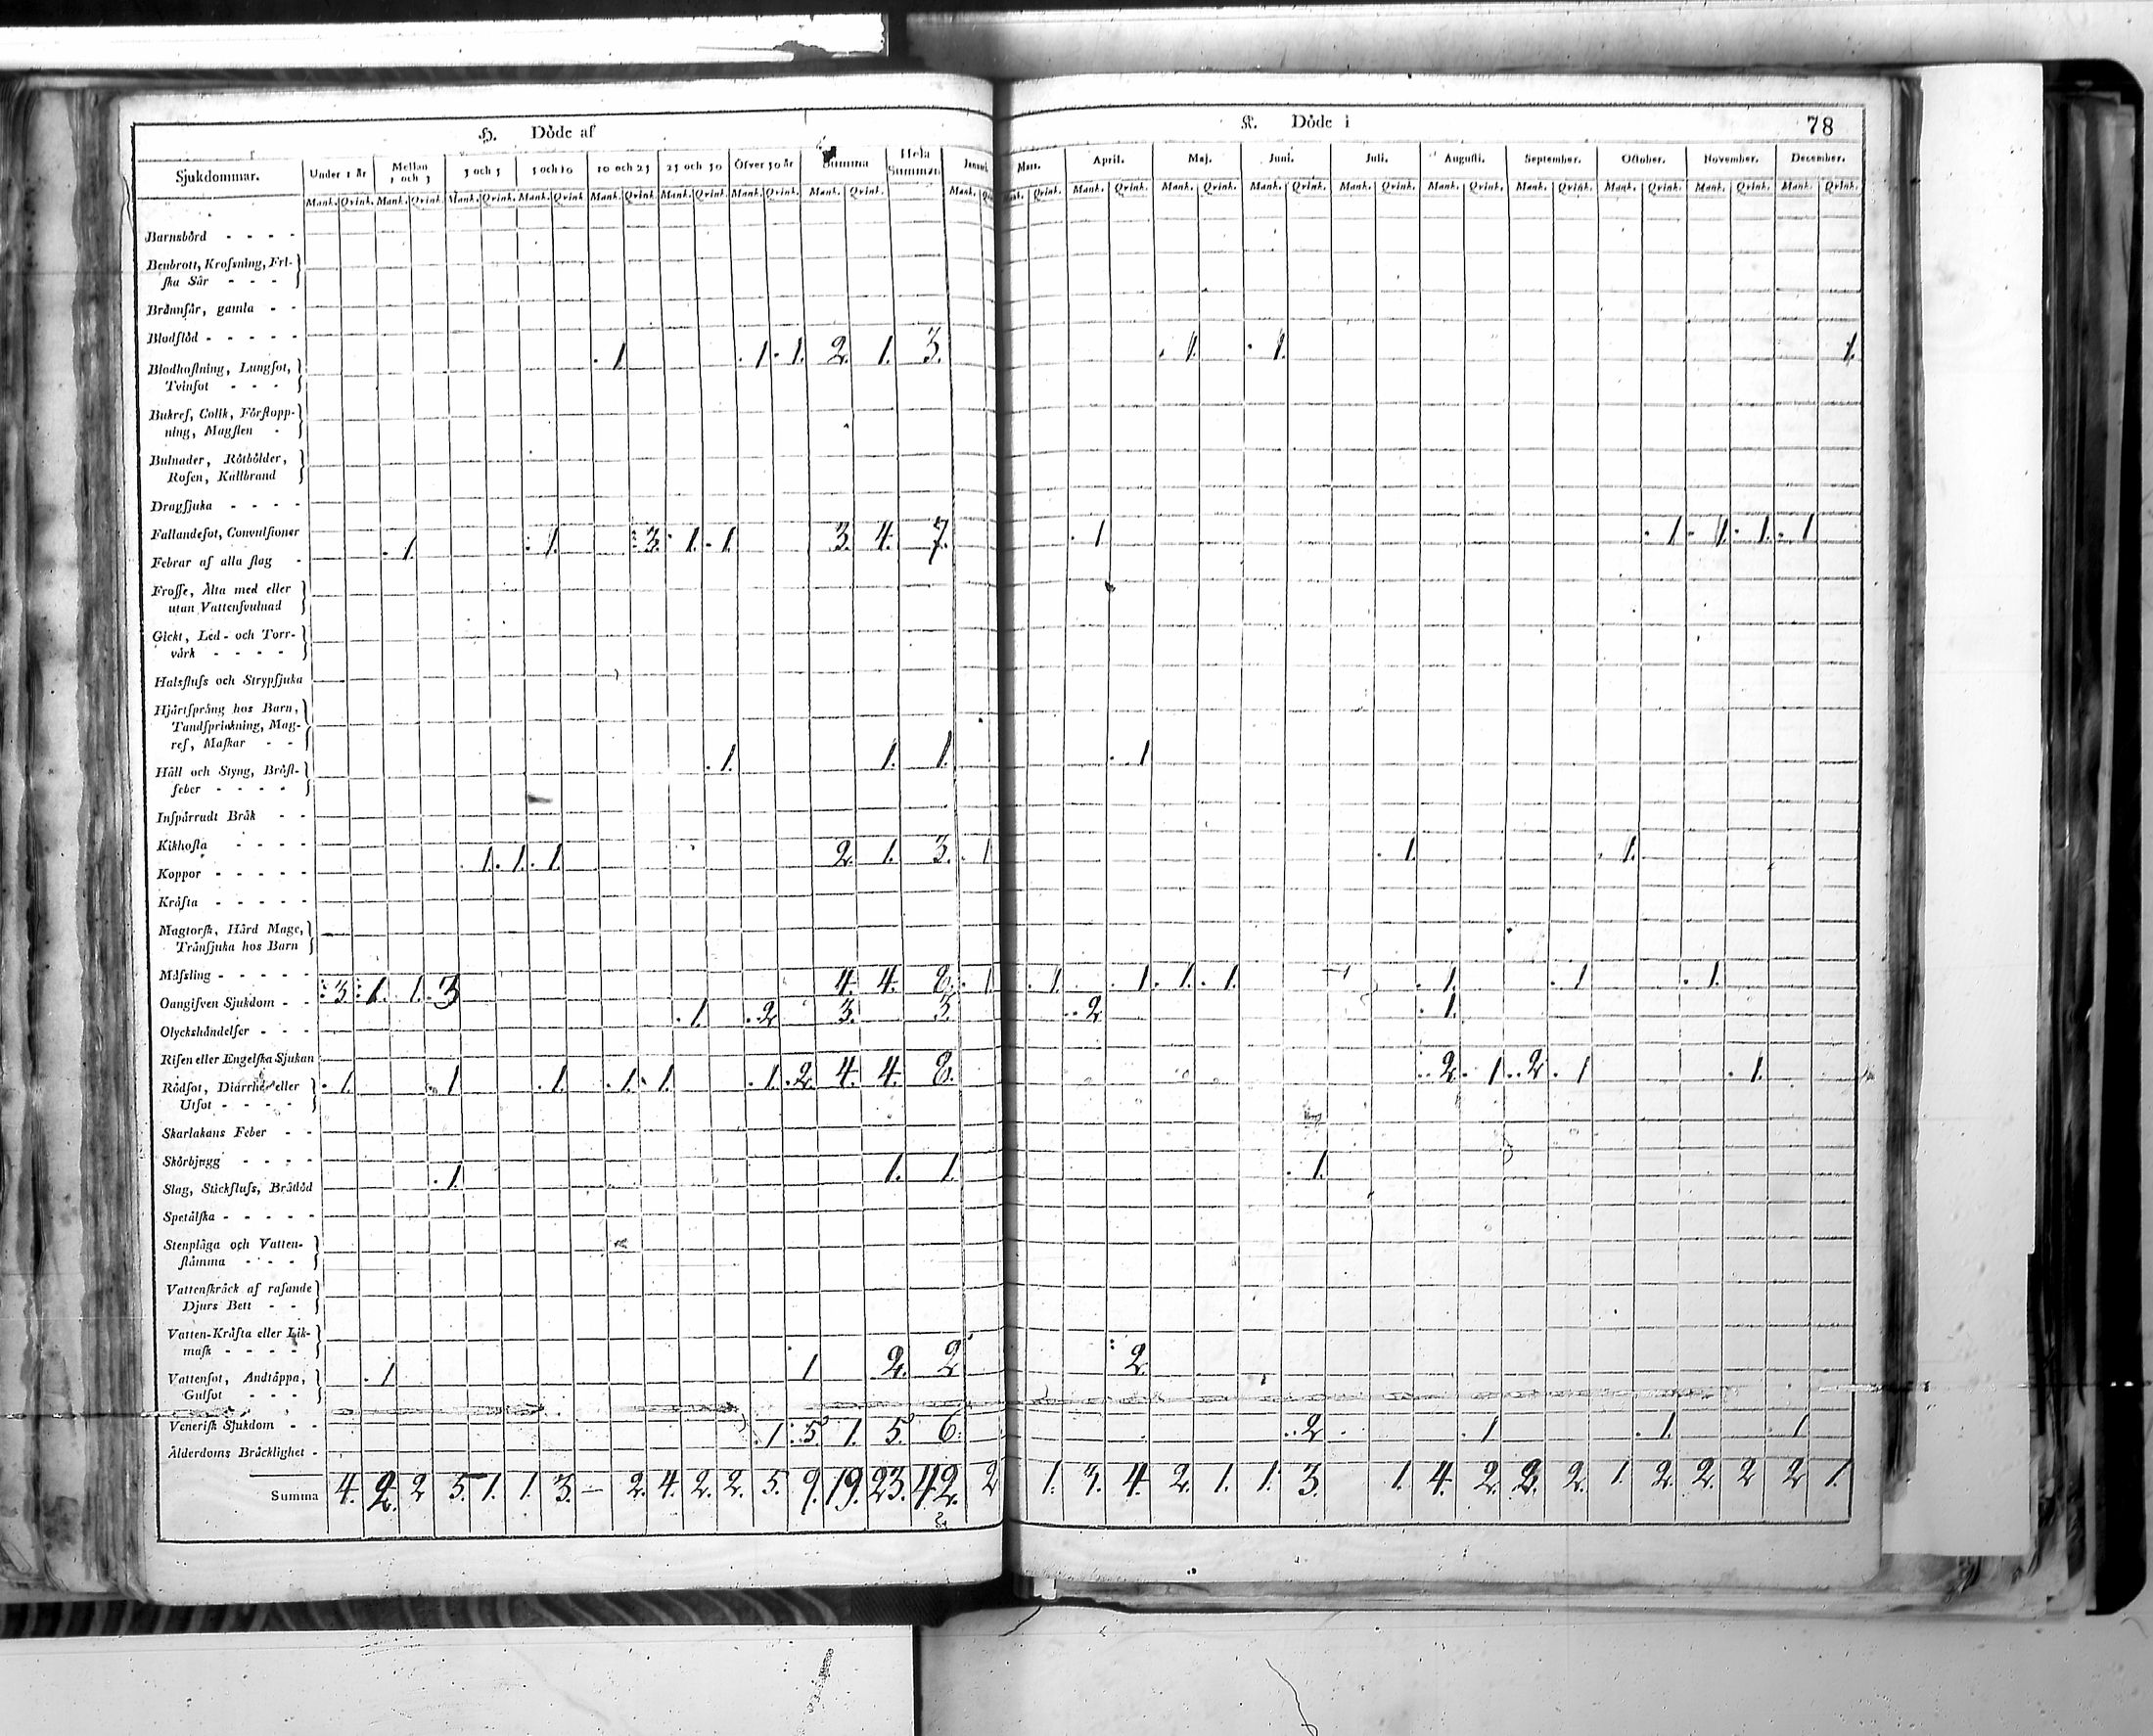 H. Döde af
K. Döde i
78
Sjukdommar. Under 1 år Mellan 1 och 3 3 och 5 5 och 10 10 och 25 25 och 50 Öfver 50 år Summa Hela Summan Januari. Mars. April. Maj. Juni. Juli. Augusti. September. October. November. December.
Mank. Qvink. Mank. Qvink. Mank. Qvink. Mank. Qvink Mank. Qvink. Mank. Qvink. Mank. Qvink. Mank. Qvink. Mank. Qvink. Mank. Qvink. Mank. Qvink. Mank. Qvink. Mank. Qvink. Mank. Qvink. Mank. Qvink. Mank. Qvink. Mank. Qvink. Mank. Qvink.
Barnsbörd - - - -
Benbrott, Krofsning, Fri-
ska Sår - - -
Brännsår, gamla - -
Blodflöd - - - - -
Blodhostning, Lungsot,
Tvinsot - - - 1 1. 1. 2. 1. 3. 1. 1. 1.
Bukref, Colik, Förstopp-
ning, Magsten -
Bulnader, Rötbölder,
Rosen, Kallbrand
Dragsjuka - - - -
Fallandesot, Convulsioner
Febrar af alla slag - 1. 1. 3. 1. 1. 3. 4. 7. 1 1. 1. 1. 1
Frosse, Älta med eller
utan Vattensvulnad
Gickt, Led- och Torr-
värk - - - -
Halsflufs och Strypsjuka
Hjärtsprång hos Barn,
Tandsprickning, Mag-
ref, Maskar - -
Håll och Styng, Bröst-
feber - - - - 1. 1. 1. 1
Inspärradt Bråk - -
Kikhosta - - - -
Koppor - - - - - 1. 1. 1. 2. 1. 3. 1 1. 1.
Kräfta - - - - -
Magtorsk, Hård Mage,
Tränsjuka hos Barn
Mäfsling - - - - -
Oangifven Sjukdom - - 3 1. 1. 3 4. 4. 8. 1 1. 1. 1. 1. 1. 1. 1.
Olyckshändelser - - - 1. 2 3. 3. 2 1.
Risen eller Engelska Sjukan
Rödsot, Diarrhée eller
Utsot - - - - 1. 1 1. 1. 1. 1. 2. 4. 4. 8. 2. 1. 2. 1 1.
Skarlakans Feber - -
Skörbjugg - - - -
Slag, Stickflufs, Brådöd 1. 1. 1. 1.
Spetälska - - - - -
Stenplåga och Vatten-
stämma - - -
Vattenskräck af rasande
Djurs Bett - -
Vatten-Kräfta eller Lik-
mask - - - -
Vattensot, Andtäppa,
Gulsot - - - 1 1 2. 2 2.
Venerisk Sjukdom - -
Ålderdoms Bräcklighet - 1 5 1. 5. 6. 2 1 1. 1
Summa 4. 2. 2 5. 1. 1. 3. — 2. 4. 2. 2. 5. 9. 19. 23. 42. 2 1. 3. 4. 2. 1. 1. 3. 1. 4. 2. 2. 2. 1. 2. 2. 2 2 1.